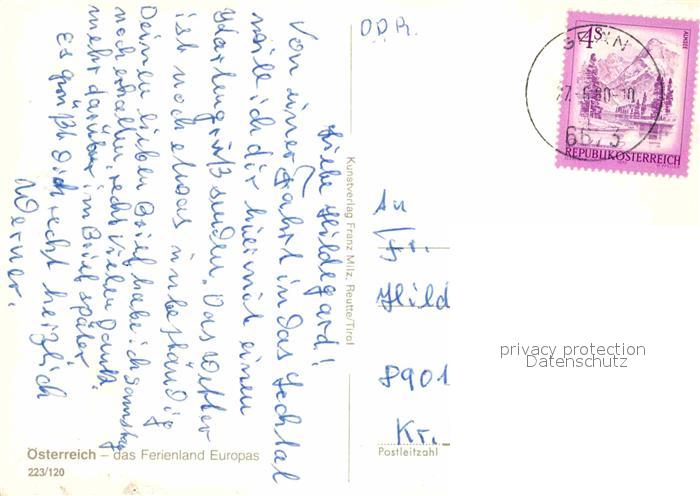 Liebe Hildegard!
Von einer Fahrt in das Lechtal
will ich dir hiermit einen
Kartengruß senden. Das Wetter
ist noch etwas unbeständig
Deinen lieben Brief habe ich Samstag
noch erhalten, recht vielen Dank!
mehr darüber im Brief später.
Es grüßt Dich recht herzlich
Werner.
Österreich – das Ferienland Europas
223/120
Kunstverlag Franz Milz, Reutte/Tirol
DDR.
4S
ALMSEE
REPUBLIK ÖSTERREICH
6673
An
Fr.
Hild
8901
Kr.
Postleitzahl
privacy protection
Datenschutz